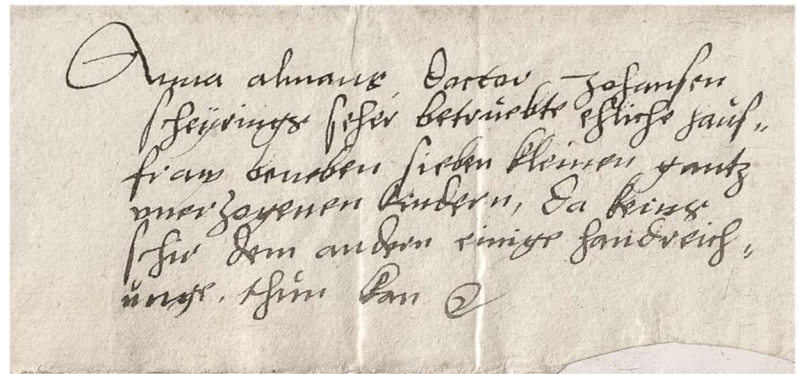 Anna almans, Doctor Johansen
scheÿrings seher betruebte ehliche haus-
fraw beneben sieben kleinen gantz
vnerzogenen kindern, da keins
schir dem andern einige handreich-
unge thun kan